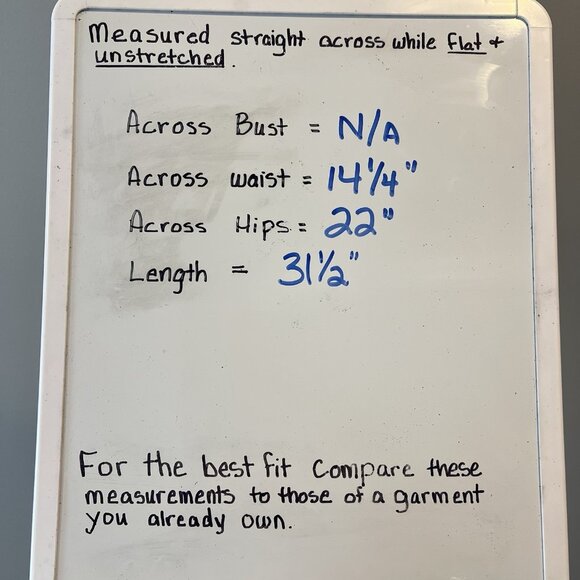 Measured straight across while flat +
unstretched.
Across Bust = N/A
Across waist = 14 1/4"
Across Hips = 22"
Length = 31 1/2"
For the best fit Compare these
measurements to those of a garment
you already own.